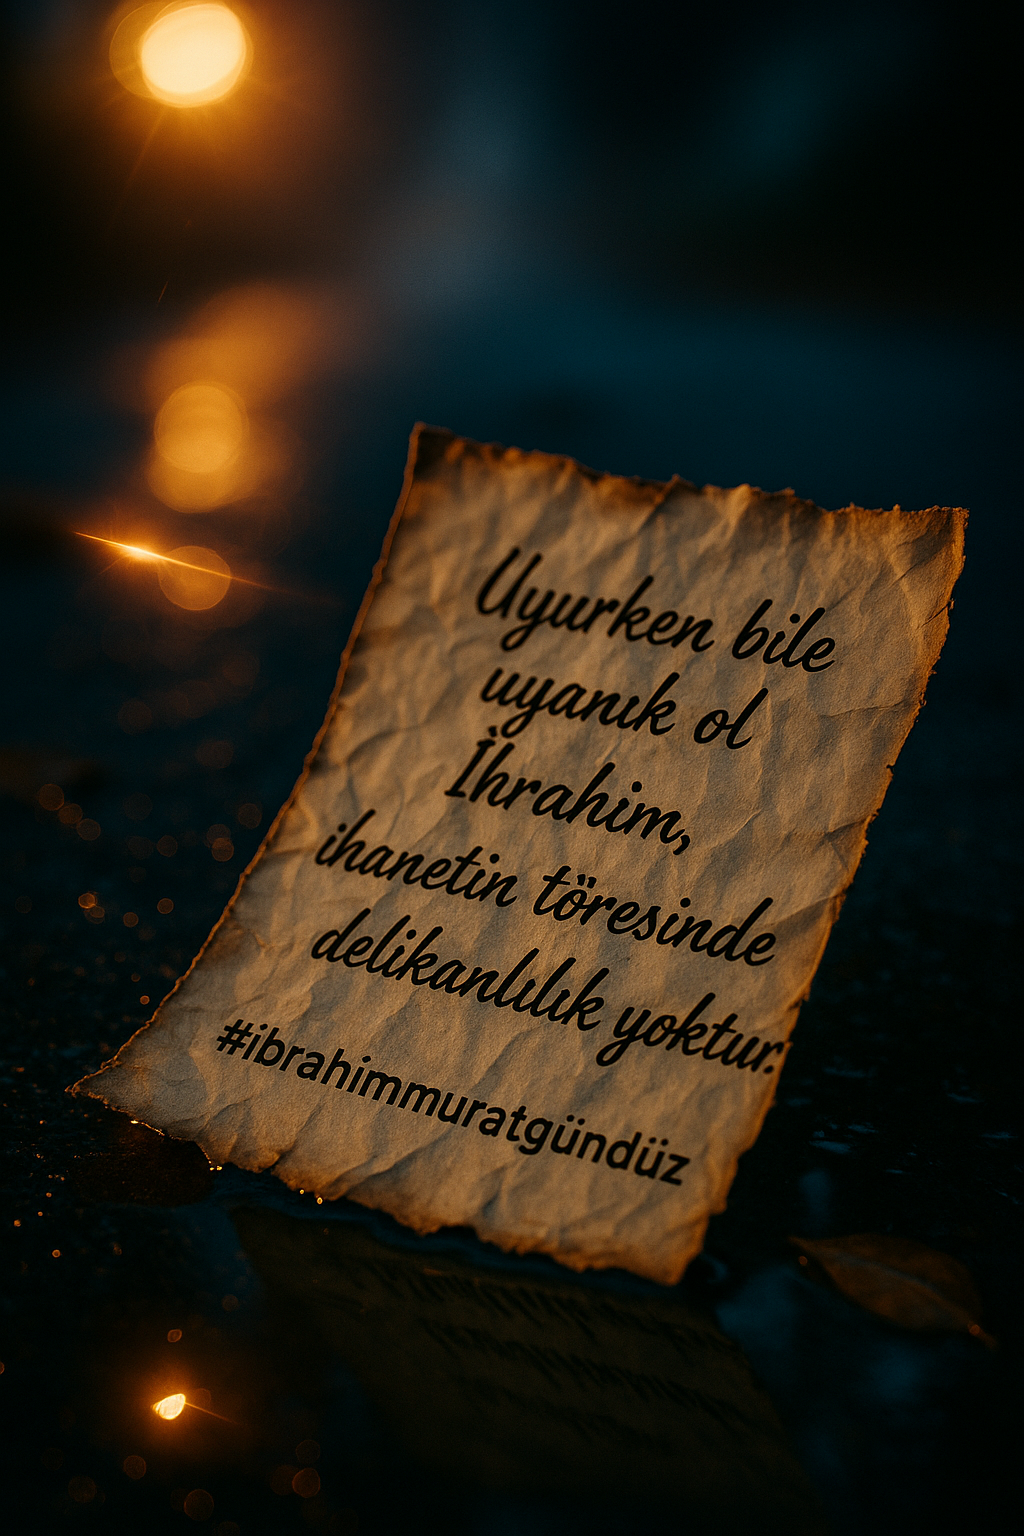 Uyurken bile
uyanık ol
İhrahim,
ihanetin töresinde
delikanlılık yoktur.
#ibrahimmuratgündüz